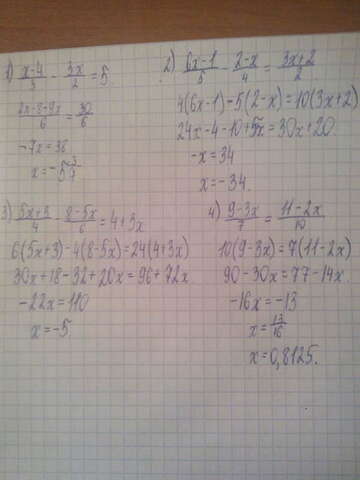 1) (x-4)/3 - 3x/2 = 5
(2x-8-9x)/6 = 30/6
-7x = 38
x = -5 3/7
2) (6x-1)/5 - (2-x)/4 = (3x+2)/2
4(6x-1) - 5(2-x) = 10(3x+2)
24x-4-10+5x = 30x+20
-x = 34
x = -34.
3) (5x+3)/4 - (8-5x)/6 = 4+3x
6(5x+3) - 4(8-5x) = 24(4+3x)
30x+18-32+20x = 96+72x
-22x = 110
x = -5
4) (9-3x)/7 = (11-2x)/10
10(9-3x) = 7(11-2x)
90-30x = 77-14x
-16x = -13
x = 13/16
x = 0,8125.